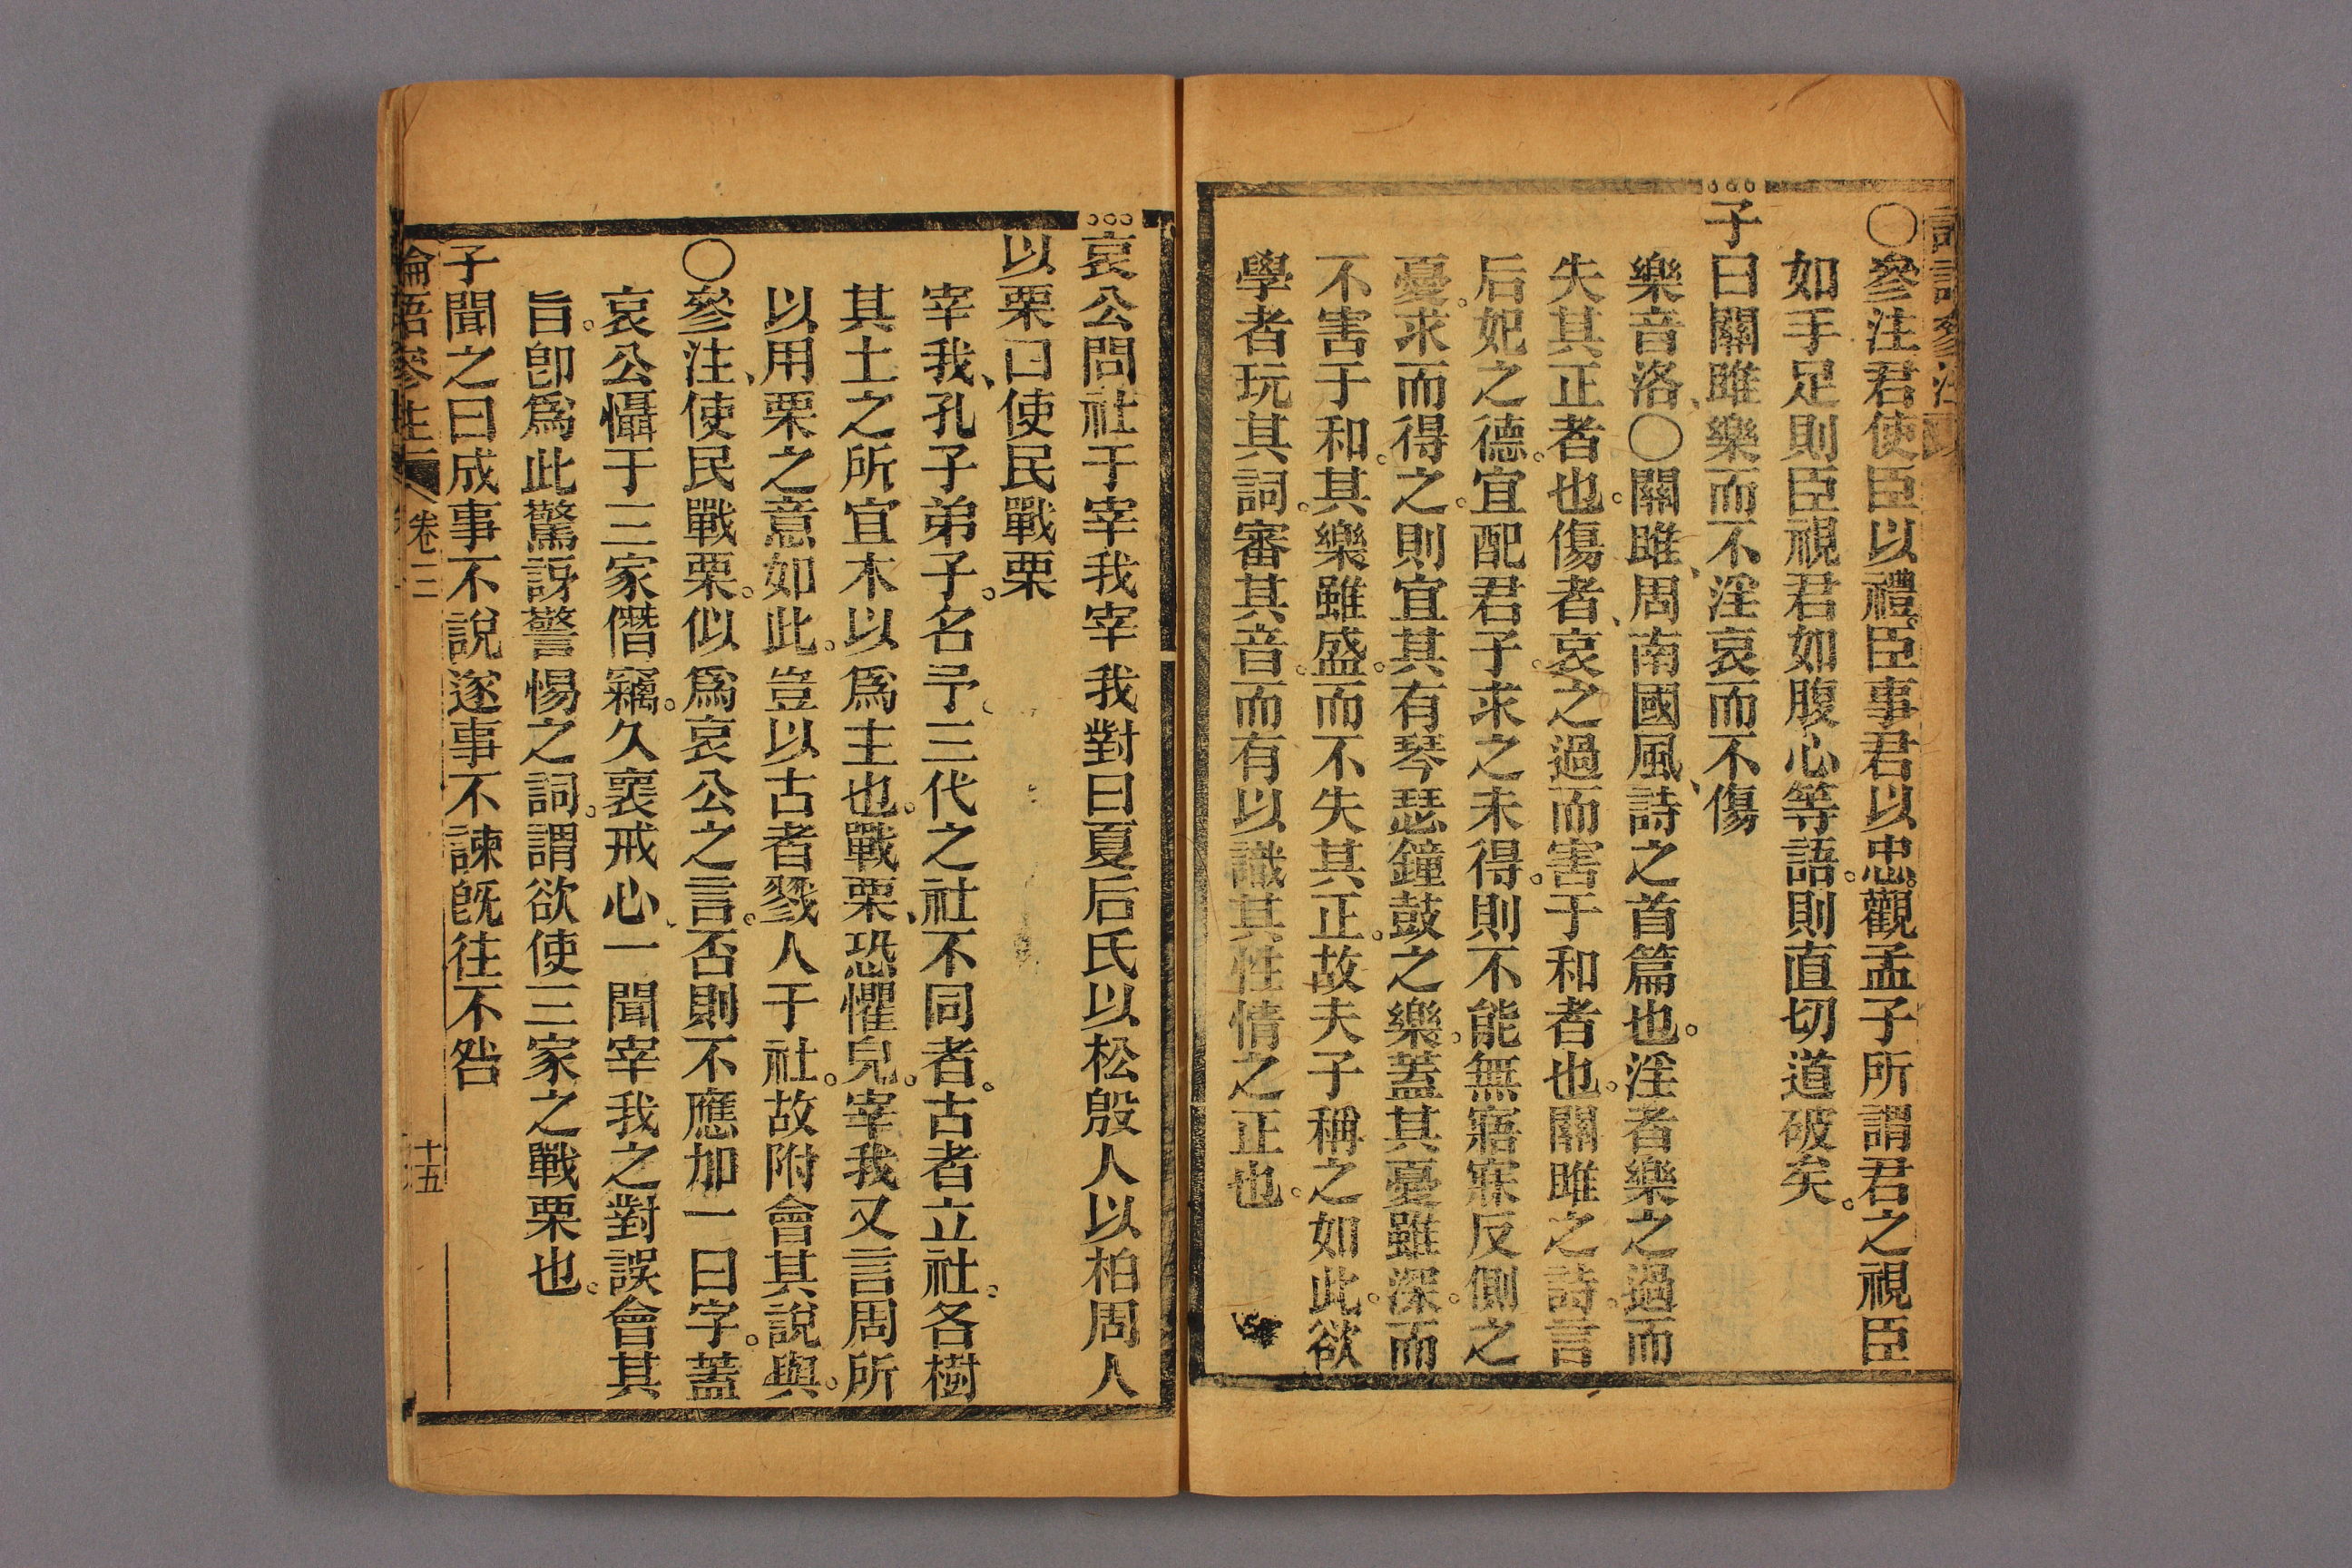 〇參注君使臣以禮。臣事君以忠。觀孟子所謂君之視臣
如手足則臣視君如腹心等語。則直切道破矣。
子曰關雎樂而不淫哀而不傷
樂音洛、〇關雎、周南國風、詩之首篇也。淫者樂之過而
失其正者也。傷者、哀之過而害于和者也。關雎之詩。言
后妃之德。宜配君子。求之未得。則不能無寤寐反側之
憂。求而得之。則宜其有琴瑟鐘鼓之樂。蓋其憂雖深。而
不害于和。其樂雖盛。而不失其正。故夫子稱之如此。欲
學者玩其詞。審其音。而有以識其性情之正也。
哀公問社于宰我宰我對曰夏后氏以松殷人以柏周人
以栗曰使民戰栗
宰我、孔子弟子。名予。三代之社不同者。古者立社。各樹
其土之所宜木以爲主也。戰栗、恐懼皃。宰我又言周所
以用栗之意如此。豈以古者戮人于社。故附會其說與。
〇參注、使民戰栗。似爲哀公之言。否則不應加一曰字。蓋
哀公懾于三家僭竊。久褱戒心、一聞宰我之對誤會其
旨。卽爲此驚訝警惕之詞。謂欲使三家之戰栗也。
子聞之曰成事不說遂事不諫旣往不咎
論語參注
卷三
十五